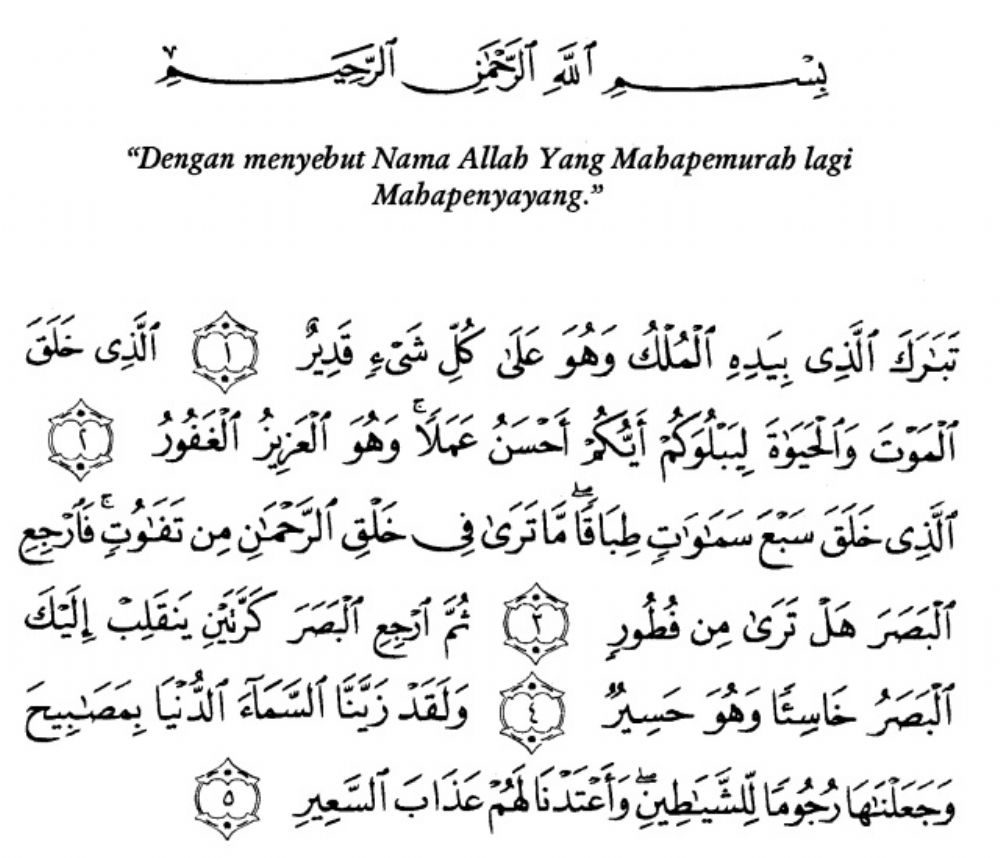 بِسْمِ ٱللَّهِ ٱلرَّحْمَٰنِ ٱلرَّحِيمِ
“Dengan menyebut Nama Allah Yang Mahapemurah lagi
Mahapenyayang.”
تَبَٰرَكَ ٱلَّذِى بِيَدِهِ ٱلْمُلْكُ وَهُوَ عَلَىٰ كُلِّ شَىْءٍ قَدِيرٌ ١ ٱلَّذِى خَلَقَ
ٱلْمَوْتَ وَٱلْحَيَوٰةَ لِيَبْلُوَكُمْ أَيُّكُمْ أَحْسَنُ عَمَلًا ۚ وَهُوَ ٱلْعَزِيزُ ٱلْغَفُورُ ٢
ٱلَّذِى خَلَقَ سَبْعَ سَمَٰوَٰتٍ طِبَاقًا ۖ مَّا تَرَىٰ فِى خَلْقِ ٱلرَّحْمَٰنِ مِن تَفَٰوُتٍ ۚ فَٱرْجِعِ
ٱلْبَصَرَ هَلْ تَرَىٰ مِن فُطُورٍ ٣ ثُمَّ ٱرْجِعِ ٱلْبَصَرَ كَرَّتَيْنِ يَنقَلِبْ إِلَيْكَ
ٱلْبَصَرُ خَاسِئًا وَهُوَ حَسِيرٌ ٤ وَلَقَدْ زَيَّنَّا ٱلسَّمَآءَ ٱلدُّنْيَا بِمَصَٰبِيحَ
وَجَعَلْنَٰهَا رُجُومًا لِّلشَّيَٰطِينِ ۖ وَأَعْتَدْنَا لَهُمْ عَذَابَ ٱلسَّعِيرِ ٥